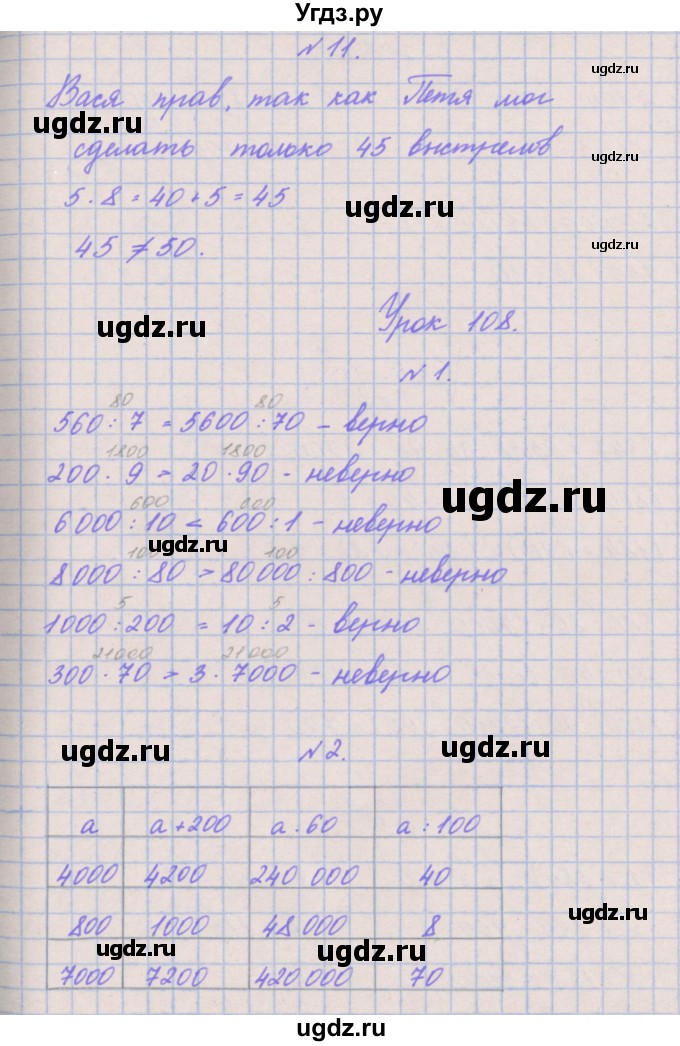 Угдз.ру
№ 11.
Вася прав, так как Петя мог
ugdz.ru
ugdz.ru
сделать только 45 выстрелов
ugdz.ru
5 · 8 = 40 + 5 = 45
ugdz.ru
45 ≠ 50.
ugdz.ru
Урок 108.
ugdz.ru
№ 1.
80 80
560 : 7 = 5600 : 70 – верно
1800 1800
200 · 9 > 20 · 90 - неверно
ugdz.ru
600 600
6000 : 10 < 600 : 1 - неверно
ugdz.ru
100 100
8000 : 80 > 80000 : 800 - неверно
5 5
1000 : 200 = 10 : 2 - верно
21000 21000
300 · 70 > 3 · 7000 - неверно
№ 2.
ugdz.ru
ugdz.ru
a a+200 a · 60 a : 100
4000 4200 240 000 40
800 1000 48 000 8
ugdz.ru
ugdz.ru
ugdz.ru
7000 7200 420 000 70
ugdz.ru